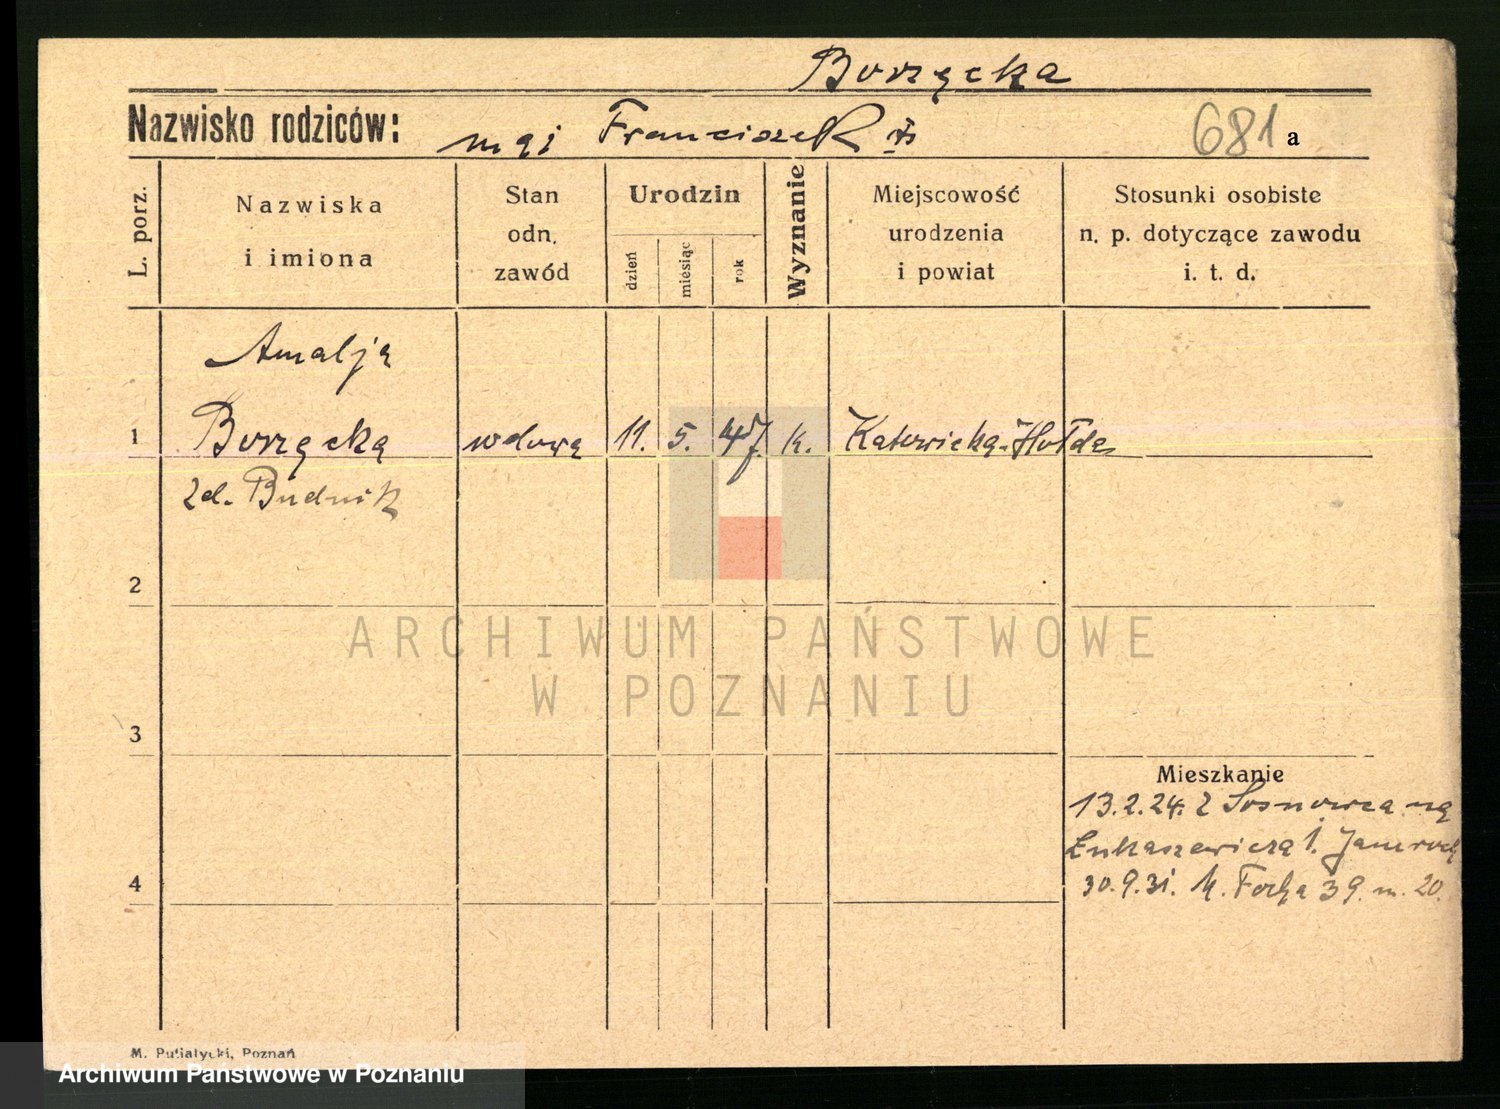 Borzęcka
Nazwisko rodziców: mąż Franciszek
681 a
L. porz.
Nazwiska
i imiona
Stan
odn.
zawód
Urodzin
dzień
miesiąc
rok
Wyznanie
Miejscowość
urodzenia
i powiat
Stosunki osobiste
n. p. dotyczące zawodu
i. t. d.
Amalja
1 Borzęcka wdowa 11. 5. 47. k. Katowicka-Hołda
zd. Budnik
2
ARCHIWUM PAŃSTWOWE
W POZNANIU
3
Mieszkanie
13.2.24. z Sosnowca na
Łukaszewicza 1.
4 30.9.31. M. Focha 39. m. 20.
M. Putiatycki, Poznań
Archiwum Państwowe w Poznaniu